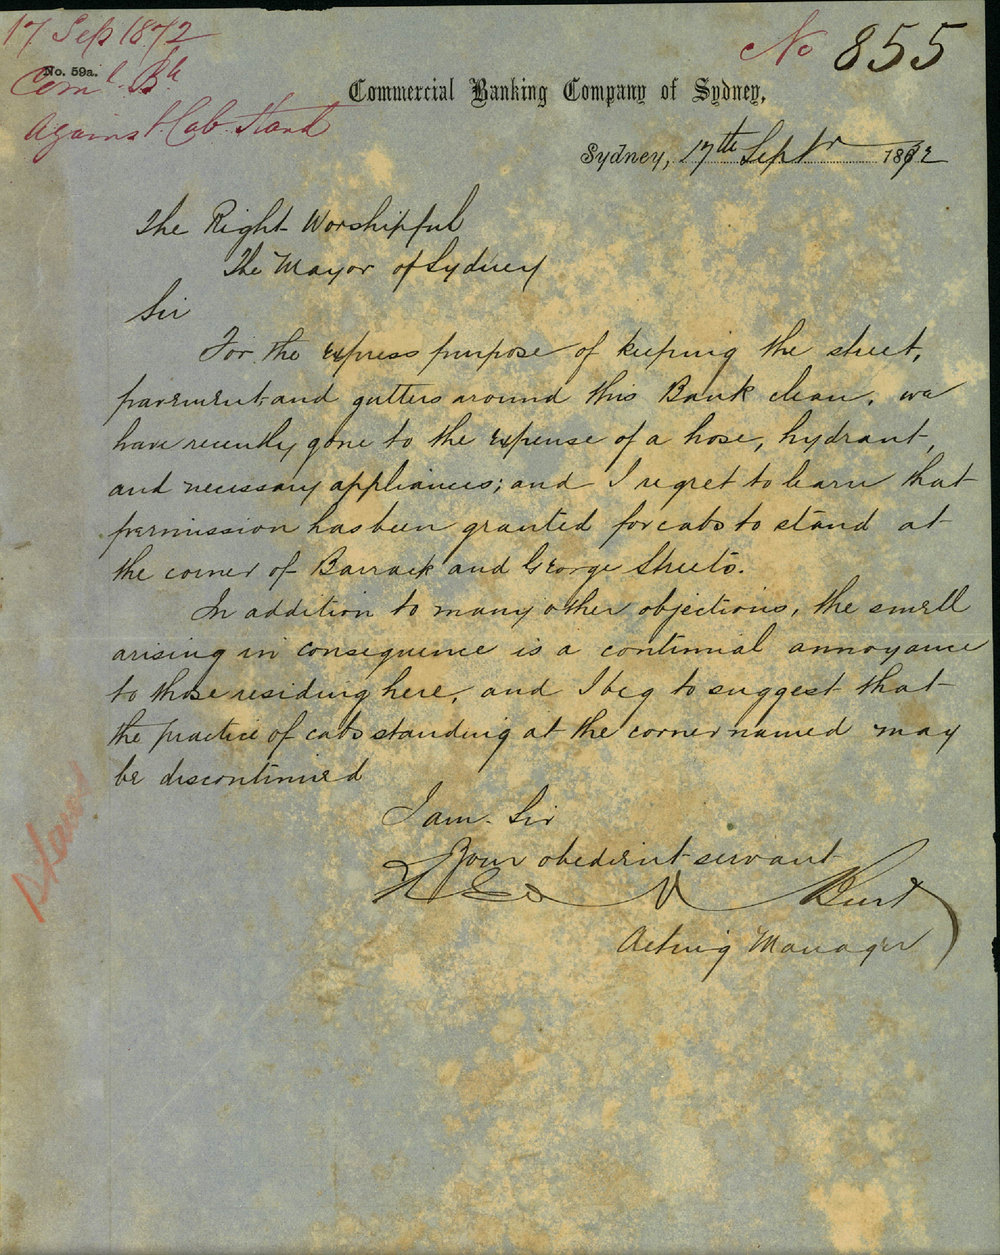 17 Sep 1872
No. 59a.
Coml. Bk
Against Cab Stand
No 855
Commercial Banking Company of Sydney,
Sydney, 17th Septr 1872
The Right Worshipful
The Mayor of Sydney
Sir
For the express purpose of keeping the street,
pavement and gutters around this Bank clean, we
have recently gone to the expense of a hose, hydrant,
and necessary appliances; and I regret to learn that
permission has been granted for cabs to stand at
the corner of Barrack and George Streets.
In addition to many other objections, the smell
arising in consequence is a continual annoyance
to those residing here, and I beg to suggest that
the practice of cabs standing at the corner named may
be discontinued
I am Sir
Your obedient servant
Burt
Acting Manager